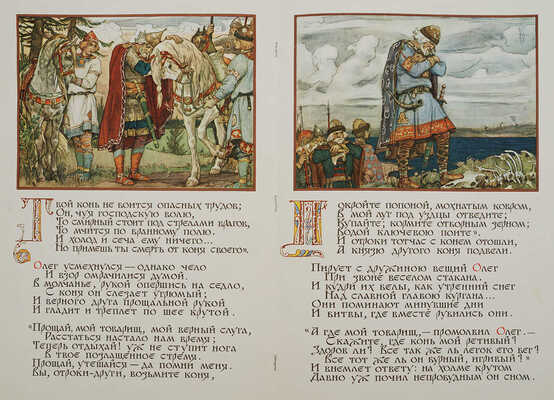 Твой конь не боится опасных трудов;
Он, чуя господскую волю,
То смирный стоит под стрелами врагов,
То мчится по бранному полю.
И холод и сеча ему ничего...
Но примешь ты смерть от коня своего».
Олег усмехнулся — однако чело
И взор омрачилися думой.
В молчанье, рукой опершись на седло,
С коня он слезает угрюмый;
И верного друга прощальной рукой
И гладит и треплет по шее крутой.
"Прощай, мой товарищ, мой верный слуга,
Расстаться настало нам время;
Теперь отдыхай! уж не ступит нога
В твое позлащенное стремя.
Прощай, утешайся — да помни меня.
Вы, отроки-други, возьмите коня,
Покройте попоной, мохнатым ковром,
В мой луг под уздцы отведите;
Купайте; кормите отборным зерном;
Водой ключевою поите".
И отроки тотчас с конем отошли,
А князю другого коня подвели.
Пирует с дружиною вещий Олег
При звоне веселом стакана.
И кудри их белы, как утренний снег
Над славной главою кургана...
Они поминают минувшие дни
И битвы, где вместе рубились они.
"А где мой товарищ, — промолвил Олег, —
Скажите, где конь мой ретивый?
Здоров ли? Все так же ль легок его бег?
Все тот же ль он бурный, игривый?"
И внемлет ответу: на холме крутом
Давно уж почил непробудным он сном.